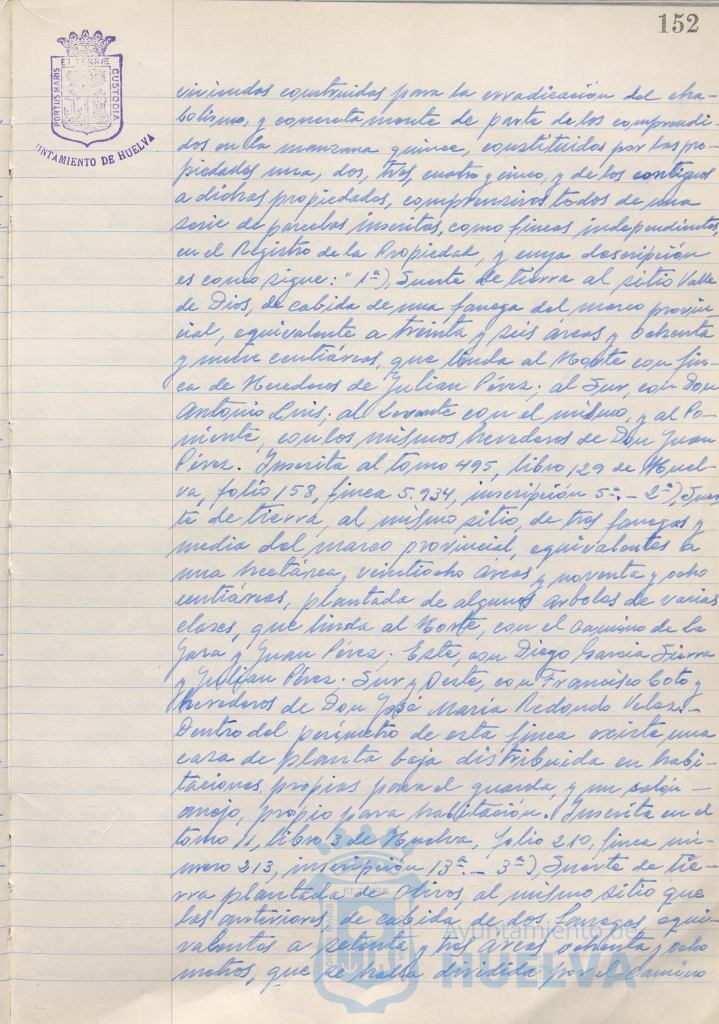 152
ET TERRÆ
PORTUS MARIS
CUSTODIA
UNTAMIENTO DE HUELVA
viviendas construidas para la erradicación del cha-
bolismo, y concretamente de parte de los comprendi-
dos en la manzana quince, constituidos por las pro-
piedades una, dos, tres, cuatro y cinco, y de los contiguos
a dichas propiedades, comprensivos todos de una
serie de parcelas inscritas, como fincas independientes,
en el Registro de la Propiedad, y cuya descripción
es como sigue: "1ª), Suerte de tierra al sitio Valle
de Dios, de cabida de una fanega del marco provin-
cial, equivalente a treinta y seis áreas y ochenta
y nueve centiáreas, que linda al Norte con fin-
ca de Herederos de Julian Pérez; al Sur, con Don
Antonio Luis; al Levante con el mismo, y al Po-
niente, con los mismos herederos de Don Juan
Pérez. Inscrita al tomo 495, libro 129 de Huel-
va, folio 158, finca 5.934, inscripción 5ª.- 2ª), Suer-
te de tierra, al mismo sitio, de tres fanegas y
media del marco provincial, equivalentes a
una hectárea, veintiocho áreas y noventa y ocho
centiáreas, plantada de algunos árboles de varias
clases, que linda al Norte, con el camino de la
Jara y Juan Pérez; Este, con Diego Garcia Sierra
y Julian Pérez; Sur y Oeste, con Francisco Coto y
herederos de Don José Maria Redondo Velaz.-
Dentro del perímetro de esta finca existe una
casa de planta baja distribuida en habi-
taciones, propias para el guarda, y un salón
anejo, propio para habitación. Inscrita en el
tomo 11, libro 3 de Huelva, folio 210, finca nú-
mero 213, inscripción 13ª.- 3ª), Suerte de tie-
rra plantada de olivos, al mismo sitio que
las anteriores, de cabida de dos fanegas equi-
valentes a setenta y tres áreas ochenta y ocho
metros, que se halla dividida por el camino
Ayuntamiento de
HUELVA